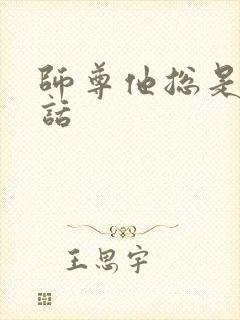 師尊他總是
話
王思宇